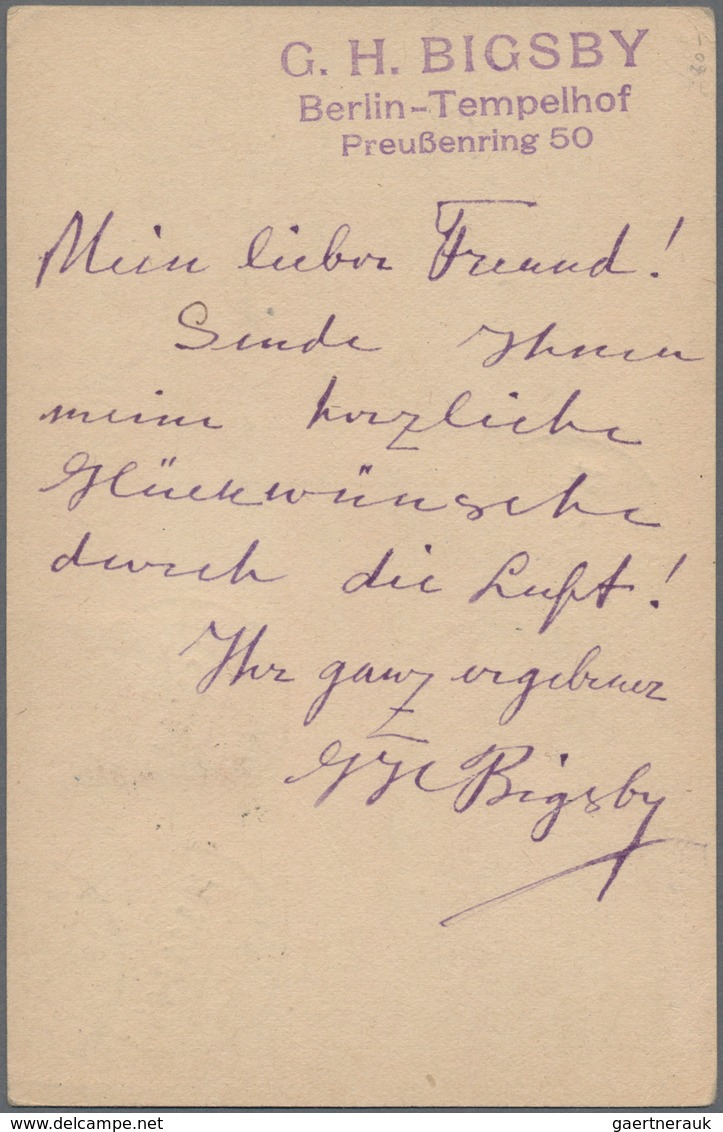 G. H. BIGSBY
Berlin-Tempelhof
Preußenring 50
80-
Mein lieber Freund!
Sende Ihnen
meine herzliche
Glückwünsche
durch die Luft!
Ihr ganz ergebener
GH Bigsby
www.delcampe.net
gaertnerauk